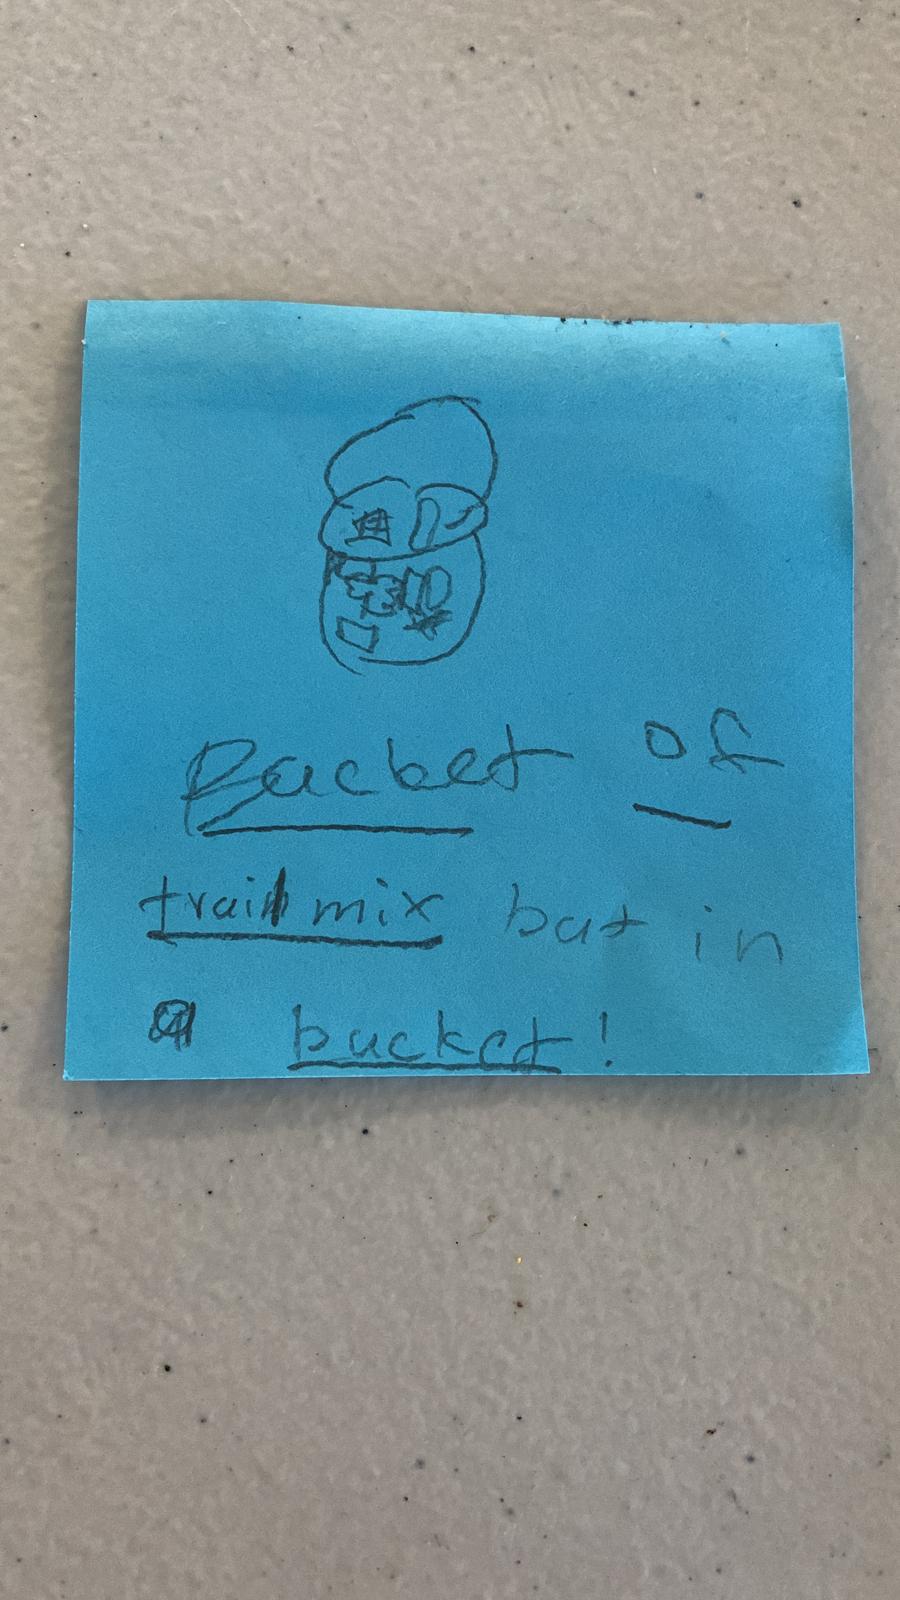 Packet of
trail mix but in
a bucket!